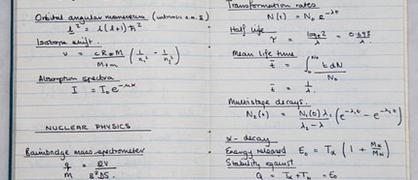 Orbital angular momentum (intrinsic a.m. S)
L² = l(l+1)ħ²
Isotope shift.
ν = cR∞M / M+m (1/n₁² - 1/n₂²)
Absorption spectra
I = I₀e^-μx
NUCLEAR PHYSICS
Bainbridge mass spectrometer
q/m = 8V / B²DS.
Transformation rates
N(t) = N₀ e^-λt
Half life
τ = log_e 2 / λ = 0.693 / λ
Mean life time
t̄ = ∫ t dN / N₀
t̄ = 1/λ.
Multistage decays.
N₂(t) = N₁(0)λ₁ / λ₂-λ₁ (e^-λ₁t - e^-λ₂t)
α-decay
Energy released E₀ = Tα (1 + Mα/
Stability against
Q = Tα + = E₀